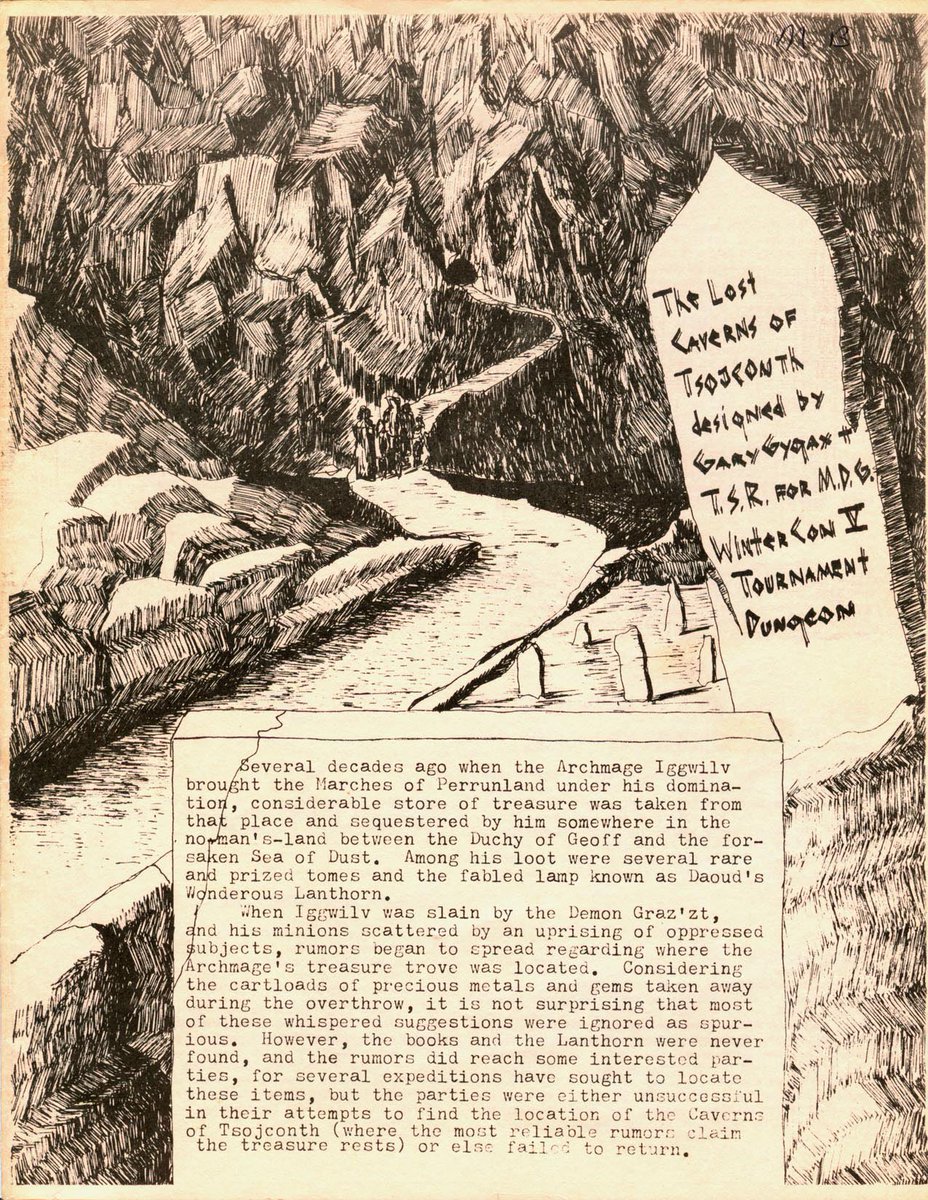 M B
The Lost
Caverns of
Tsojconth
designed by
Gary Gygax +
T.S.R. for M.D.G.
WinterCon V
Tournament
Dungeon
Several decades ago when the Archmage Iggwilv
brought the Marches of Perrunland under his domina-
tion, considerable store of treasure was taken from
that place and sequestered by him somewhere in the
no-man's-land between the Duchy of Geoff and the for-
saken Sea of Dust. Among his loot were several rare
and prized tomes and the fabled lamp known as Daoud's
Wonderous Lanthorn.
When Iggwilv was slain by the Demon Graz'zt,
and his minions scattered by an uprising of oppressed
subjects, rumors began to spread regarding where the
Archmage's treasure trove was located. Considering
the cartloads of precious metals and gems taken away
during the overthrow, it is not surprising that most
of these whispered suggestions were ignored as spur-
ious. However, the books and the Lanthorn were never
found, and the rumors did reach some interested par-
ties, for several expeditions have sought to locate
these items, but the parties were either unsuccessful
in their attempts to find the location of the Caverns
of Tsojconth (where the most reliable rumors claim
the treasure rests) or else failed to return.